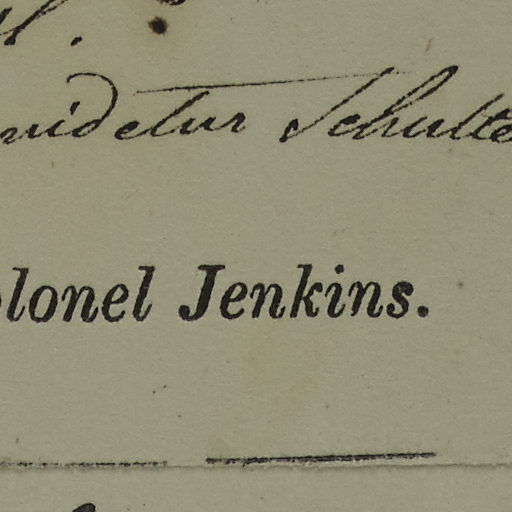 videtur Schulte
olonel Jenkins.